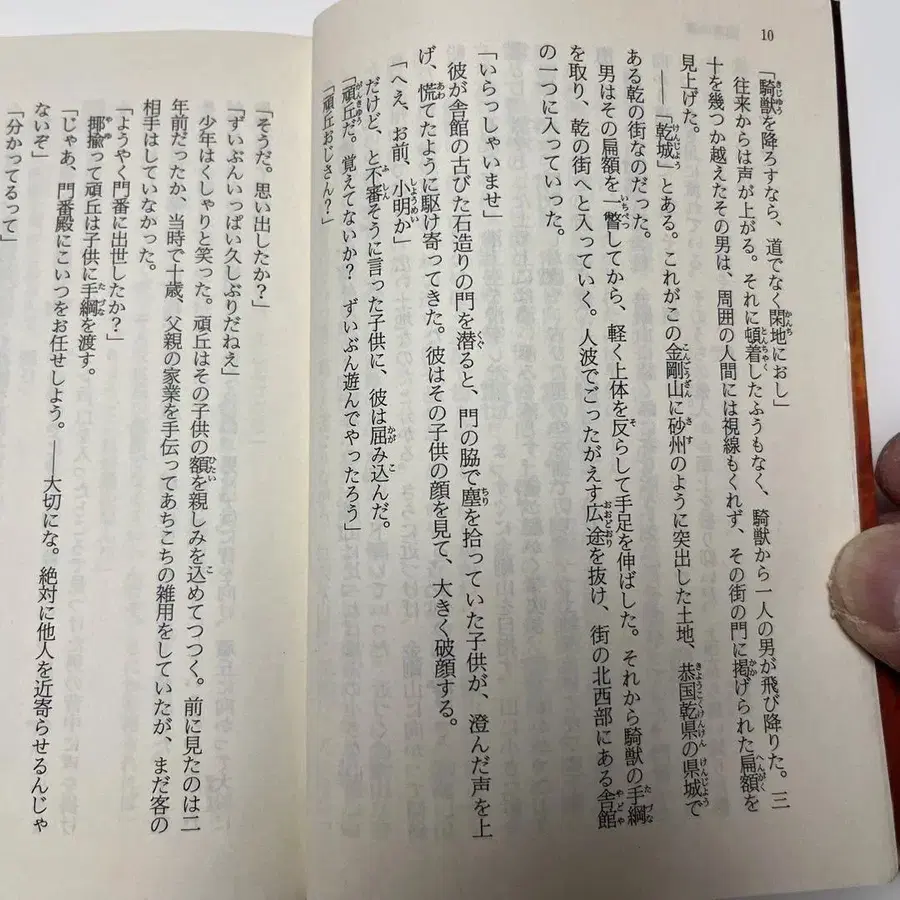 10
「騎獣を降ろすなら、道でなく閑地におし」
往来からは声が上がる。それに頓着したふうもなく、騎獣から一人の男が飛び降りた。三
十を幾つか越えたその男は、周囲の人間には視線もくれず、その街の門に掲げられた扁額を
見上げた。
――「乾城」とある。これがこの金剛山に砂州のように突出した土地、恭国乾県の県城で
ある乾の街なのだった。
男はその扁額を一瞥してから、軽く上体を反らして手足を伸ばした。それから騎獣の手綱
を取り、乾の街へと入っていく。人波でごったがえす広途を抜け、街の北西部にある舎館
の一つに入っていった。
「いらっしゃいませ」
彼が舎館の古びた石造りの門を潜ると、門の脇で塵を拾っていた子供が、澄んだ声を上
げ、慌てたように駆け寄ってきた。彼はその子供の顔を見て、大きく破顔する。
「へえ、お前、小明か」
だけど、と不審そうに言った子供に、彼は屈み込んだ。
「頑丘だ。覚えてないか? ずいぶん遊んでやったろう」
「頑丘おじさん?」
「そうだ。思い出したか?」
「ずいぶんいっぱい久しぶりだねえ」
少年はくしゃりと笑った。頑丘はその子供の額を親しみを込めてつつく。前に見たのは二
年前だったか、当時で十歳、父親の家業を手伝ってあちこちの雑用をしていたが、まだ客の
相手はしていなかった。
「ようやく門番に出世したか?」
揶揄って頑丘は子供に手綱を渡す。
「じゃあ、門番殿にこいつをお任せしよう。――大切にな。絶対に他人を近寄らせるんじゃ
ないぞ」
「分かってるって」